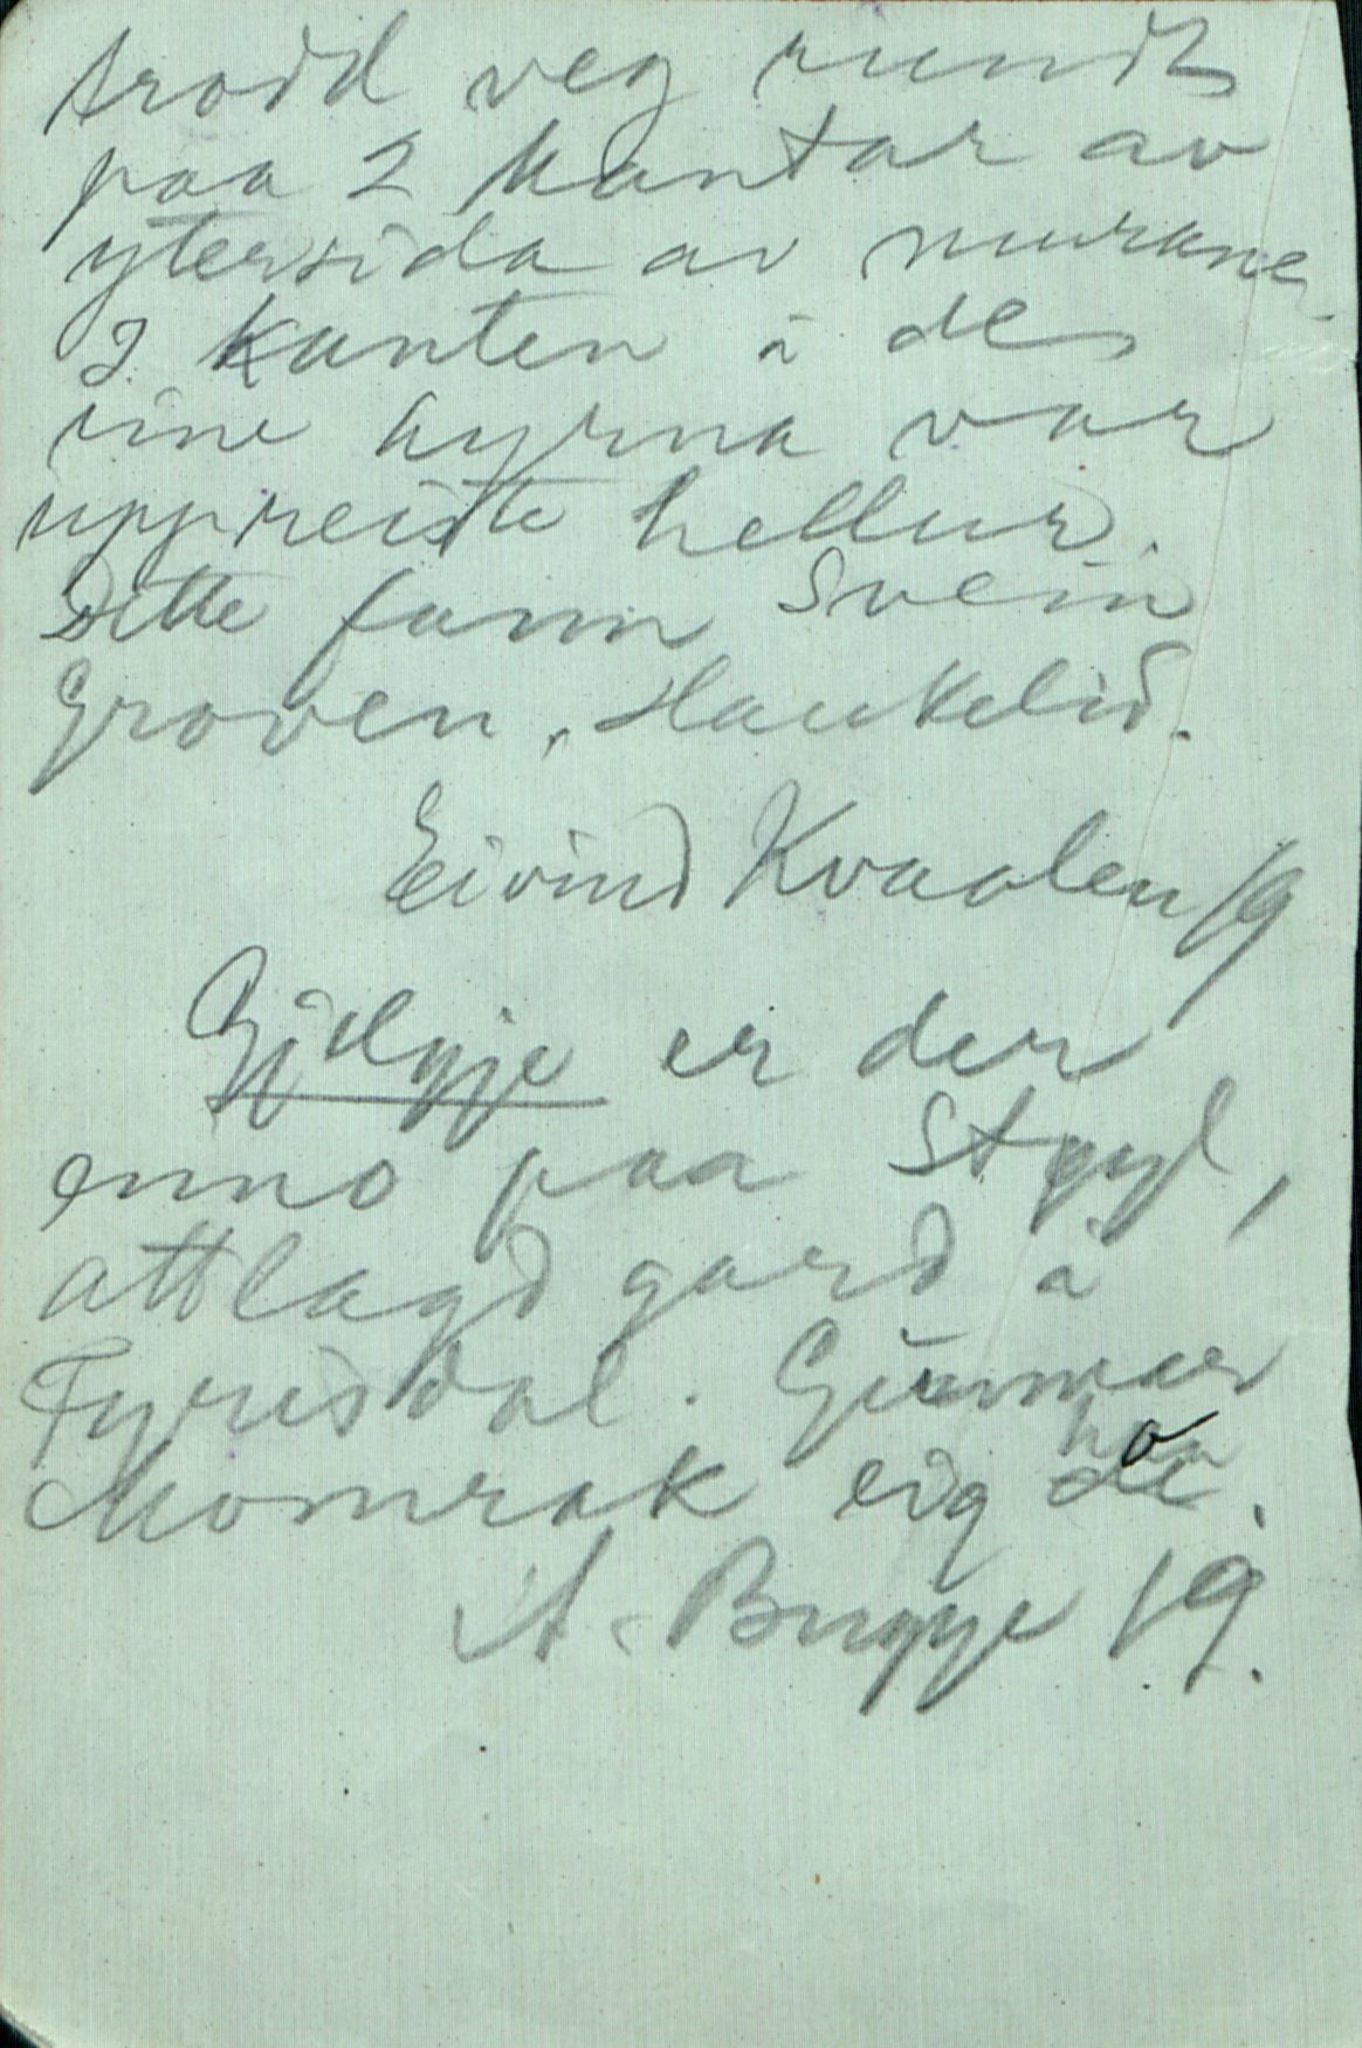 trodd veg rundt
paa 2 kantar av
ytersida av murane
I kanten i de
eine hyrna var
uppreiste hellur.
Dette fann Svein
Groven, Haukelid.
Eivind Kvaalen 19
Gjilgje er der
enno paa Stgyl,
attlagd gard i
Fyrisdal. Gunnar
Momrak eig
A. Bugge 19.